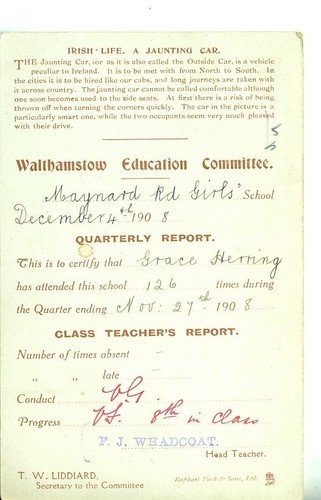 IRISH-LIFE, A JAUNTING CAR.
THE Jaunting Car, or as it is also called the Outside Car, is a vehicle
peculiar to Ireland. It is to be met with from North to South. In
the cities it is to be hired like our cabs, and long journeys are taken with
it across country. The jaunting car cannot be called comfortable although
one soon becomes used to the side seats. At first there is a risk of being
thrown off when turning the corners quickly. The car in the picture is a
particularly smart one, while the two occupants seem very much pleased
with their drive.
Walthamstow Education Committee.
Maynard Rd Girls' School
December 4th 1908
QUARTERLY REPORT.
This is to certify that Grace Herring
has attended this school 126 times during
the Quarter ending Nov: 27th 1908
CLASS TEACHER'S REPORT.
Number of times absent -
" " late -
Conduct V.G.
Progress 8th in Class
F. J. WHADCOAT.
Head Teacher.
T. W. LIDDIARD,
Secretary to the Committee
Raphael Tuck & Sons, Ltd.